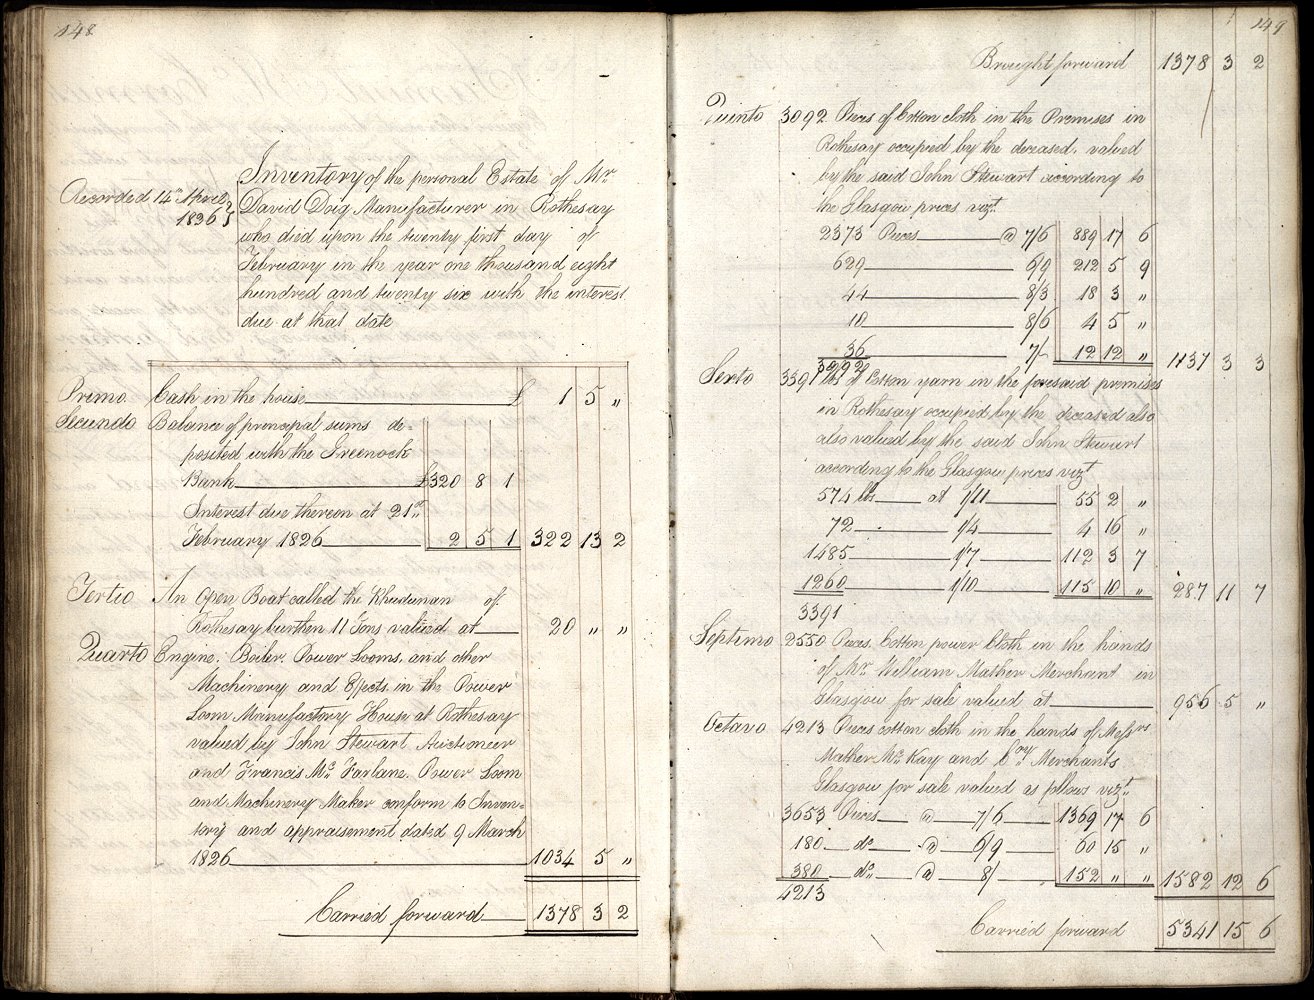 148
Inventory of the personal Estate of Mr
Recorded 14th April 1826
David Doig Manufacturer in Rothesay
who died upon the twenty first day of
February in the year one thousand eight
hundred and twenty six with the interest
due at that date
Primo Cash in the house £ 1 5 "
Secundo Balance of principal sums de
posited with the Greenock
Bank £320 8 1
Interest due thereon at 21st
February 1826 2 5 1 322 13 2
Tertio An Open Boat called the of
Rothesay burthen 11 Tons valued at 20 " "
Quarto Engine, Boiler, Power Looms, and other
Machinery and Effects in the Power
Loom Manufactory House at Rothesay
valued by John Stewart Auctioneer
and Francis Mc Farlane, Power Loom
and Machinery Maker conform to Inven-
tory and appraisement dated 9 March
1826 1034 5 "
Carried forward 1378 3 2
149
Brought forward 1378 3 2
Quinto 3092 Pieces of Cotton cloth in the Premises in
Rothesay occupied by the deceased, valued
by the said John Stewart according to
the Glasgow prices vizt
2373 Pieces @ 7/6 889 17 6
629 6/9 212 5 9
44 8/3 18 3 "
10 8/6 4 5 "
36 7/- 12 12 " 1137 3 3
3092
Sexto 3391 lbs of Cotton yarn in the foresaid premises
in Rothesay occupied by the deceased also
also valued by the said John Stewart
according to the Glasgow prices vizt
574 lbs at 1/11 55 2 "
72 1/4 4 16 "
1485 1/7 112 3 7
1260 1/10 115 10 " 287 11 7
3391
Septimo 2550 Pieces Cotton power Cloth in the hands
of Mr William Mather Merchant in
Glasgow for sale valued at 956 5 "
Octavo 4213 Pieces cotton cloth in the hands of Messrs
Mather Mc Kay and Coy Merchants
Glasgow for sale valued as follows vizt
3653 Pieces @ 7/6 1369 17 6
180 do @ 6/9 60 15 "
380 do @ 8/ 152 " " 1582 12 6
4213
Carried forward 5341 15 6